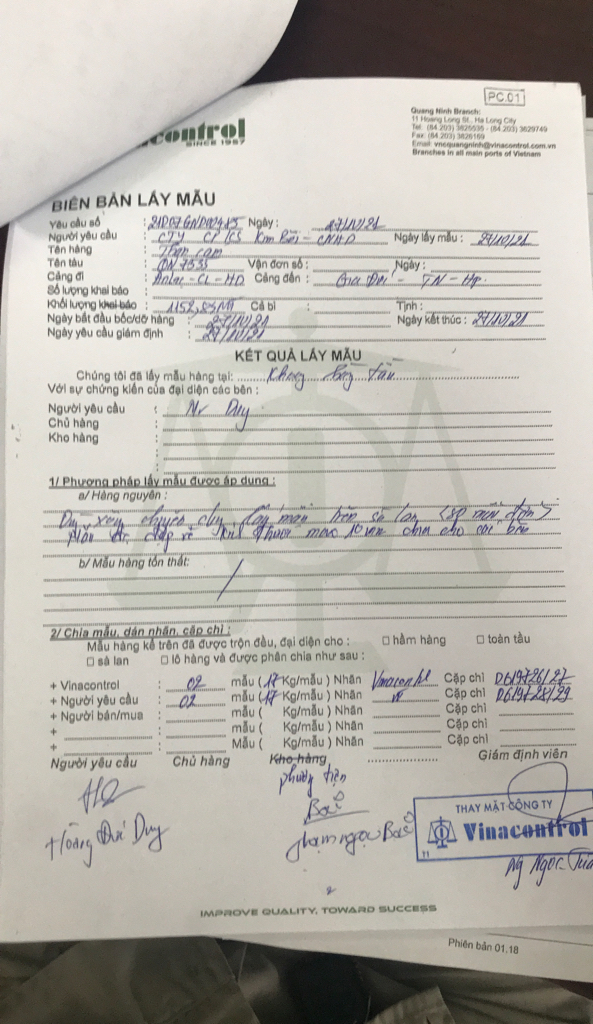 PC.01
Quang Ninh Branch:
11 Hoang Long St., Ha Long City
Tel: (84.203) 3825535 - (84.203) 3829749
Fax: (84.203) 3826169
Email: vncquangninh@vinacontrol.com.vn
Branches in all main ports of Vietnam
acontrol
SINCE 1957
BIÊN BẢN LẤY MẪU
Yêu cầu số : Ngày : 27/10/21
Người yêu cầu : CTY CP Ngày lấy mẫu : 27/10/21
Tên hàng : Than cám
Tên tàu : QN 7535 Vận đơn số : Ngày :
Cảng đi : - CL - HD Cảng đến : - TN - Hp
Số lượng khai báo :
Khối lượng khai báo : Cả bì : Tịnh :
Ngày bắt đầu bốc/dỡ hàng : 27/10/21 Ngày kết thúc : 27/10/21
Ngày yêu cầu giám định : 27/10/21
KẾT QUẢ LẤY MẪU
Chúng tôi đã lấy mẫu hàng tại: tàu
Với sự chứng kiến của đại diện các bên :
Người yêu cầu : Mr Duy
Chủ hàng :
Kho hàng :
1/ Phương pháp lấy mẫu được áp dụng :
a/ Hàng nguyên :
lấy mẫu trên sà lan
chia cho các bên
b/ Mẫu hàng tổn thất:
2/ Chia mẫu, dán nhãn, cặp chì :
Mẫu hàng kể trên đã được trộn đều, đại diện cho : □ hầm hàng □ toàn tàu
□ sà lan □ lô hàng và được phân chia như sau :
+ Vinacontrol : 02 mẫu (17 Kg/mẫu ) Nhãn Vinacontrol Cặp chì D619726/27
+ Người yêu cầu : 02 mẫu (17 Kg/mẫu ) Nhãn Cặp chì D619728/29
+ Người bán/mua : mẫu ( Kg/mẫu ) Nhãn Cặp chì
+ : mẫu ( Kg/mẫu ) Nhãn Cặp chì
+ : Mẫu ( Kg/mẫu ) Nhãn Cặp chì
Người yêu cầu Chủ hàng Kho hàng Giám định viên
phương tiện
Hoàng Đức Duy
Phạm Ngọc Bắc
THAY MẶT CÔNG TY
Vinacontrol
11
Ng Ngọc
IMPROVE QUALITY, TOWARD SUCCESS
Phiên bản 01.18